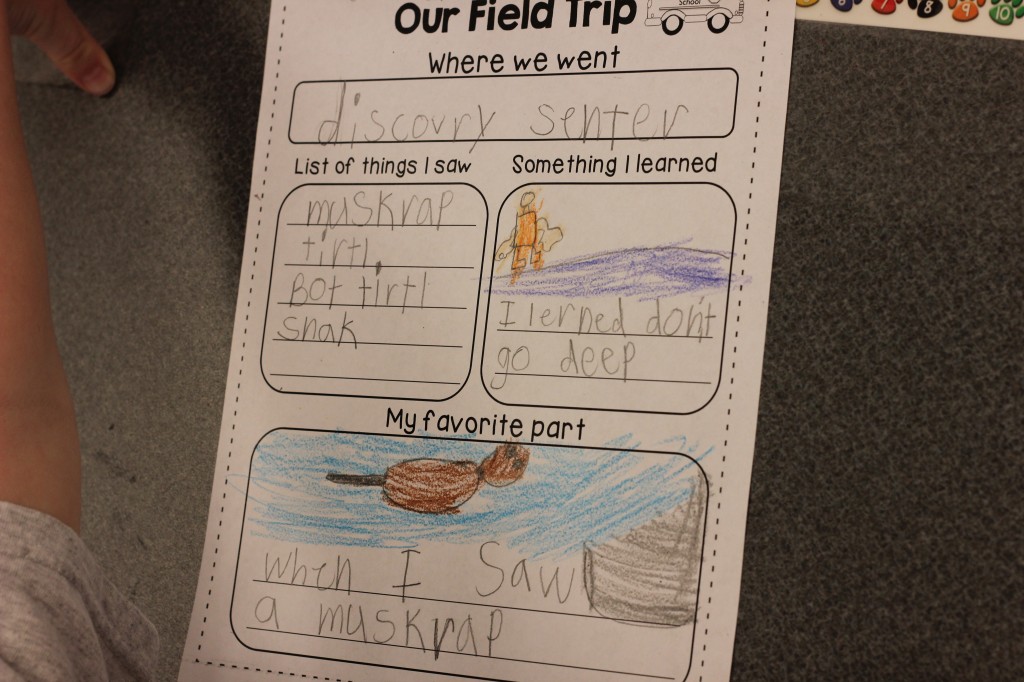 Our Field Trip
School
Where we went
discovry senter
List of things I saw
Something I learned
muskrap
tirtl
Bot tirtl
snak
I lerned don't
go deep
My favorite part
when I Saw
a muskrap
8
9
10